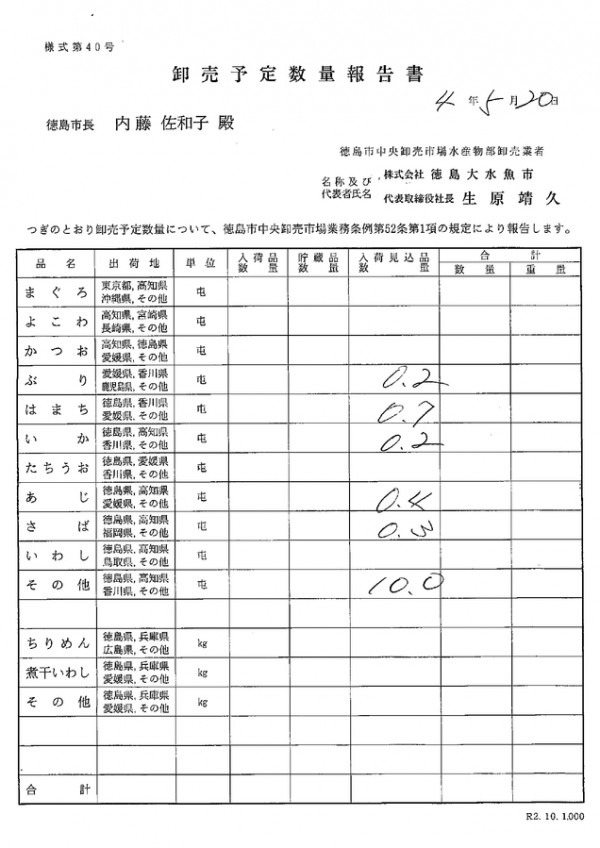 様式第40号
卸売予定数量報告書
4年5月20日
徳島市長 内藤 佐和子 殿
徳島市中央卸売市場水産物部卸売業者
名称及び 株式会社 徳島大水魚市
代表者氏名 代表取締役社長 生原靖久
つぎのとおり卸売予定数量について、徳島市中央卸売市場業務条例第52条第1項の規定により報告します。
品名 出荷地 単位 入荷品数量 貯蔵品数量 入荷見込品数量 合計 数量 重量
まぐろ 東京都,高知県 沖縄県,その他 屯
よこわ 高知県,宮崎県 長崎県,その他 屯
かつお 高知県,徳島県 愛媛県,その他 屯
ぶり 愛媛県,香川県 鹿児島県,その他 屯 0.2
はまち 徳島県,香川県 愛媛県,その他 屯 0.7
いか 徳島県,高知県 香川県,その他 屯 0.2
たちうお 徳島県,愛媛県 香川県,その他 屯
あじ 徳島県,高知県 愛媛県,その他 屯 0.4
さば 徳島県,高知県 福岡県,その他 屯 0.3
いわし 徳島県,高知県 鳥取県,その他 屯
その他 徳島県,高知県 香川県,その他 屯 10.0
ちりめん 徳島県,兵庫県 広島県,その他 kg
煮干いわし 徳島県,兵庫県 愛媛県,その他 kg
その他 徳島県,兵庫県 愛媛県,その他 kg
合計
R2.10.1.000